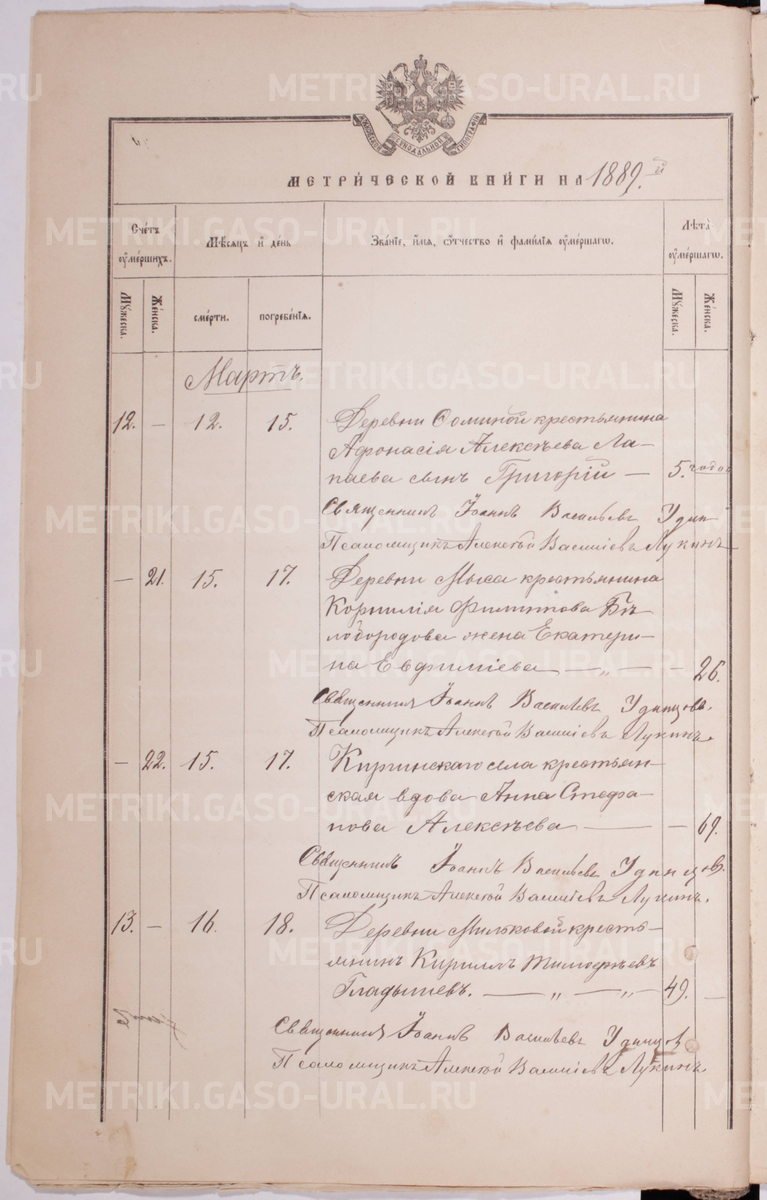 МЕТРИ́ЧЕСКОЙ КНИ́ГИ НА 1889.й
Сче́тъ оуме́ршихъ. Мѣ́сяцъ и де́нь Зва́нїе, и́мя, о́тчество и фами́лїя оуме́ршаго. Лѣта̀ оуме́ршаго.
Му́жеска. Же́нска. сме́рти. погребе́нїя. Му́жеска. Же́нска.
Мартъ.
12. — 12. 15. Деревни Соминой крестьянина
Афонасія Алексѣева Ла-
паева сынъ Григорій — 5. годов
Священникъ Іоаннъ Васильевъ Удин
Псаломщикъ Алексѣй Василіевъ Лукинъ
— 21. 15. 17. Деревни Мыса крестьянина
Корнилія Филиппова Бѣ-
лобородова жена Екатери-
на Евфиміева — „ — — 26.
Священникъ Іоаннъ Васильевъ Удинцовъ.
Псаломщикъ Алексѣй Василіевъ Лукинъ.
— 22. 15. 17. Киргинскаго села крестьян-
ская вдова Анна Стефа-
нова Алексѣева — — 69.
Священникъ Іоаннъ Васильевъ Удинцовъ.
Псаломщикъ Алексѣй Василіевъ Лукинъ.
13. — 16. 18. Деревни Мильковой кресть-
янинъ Кириллъ Тимофѣевъ
Гладышевъ. — „ — „ — 49. —
Священникъ Іоаннъ Васильевъ Удинцов
Псаломщикъ Алексѣй Василіевъ Лукинъ.
METRIKI.GASO-URAL.RU